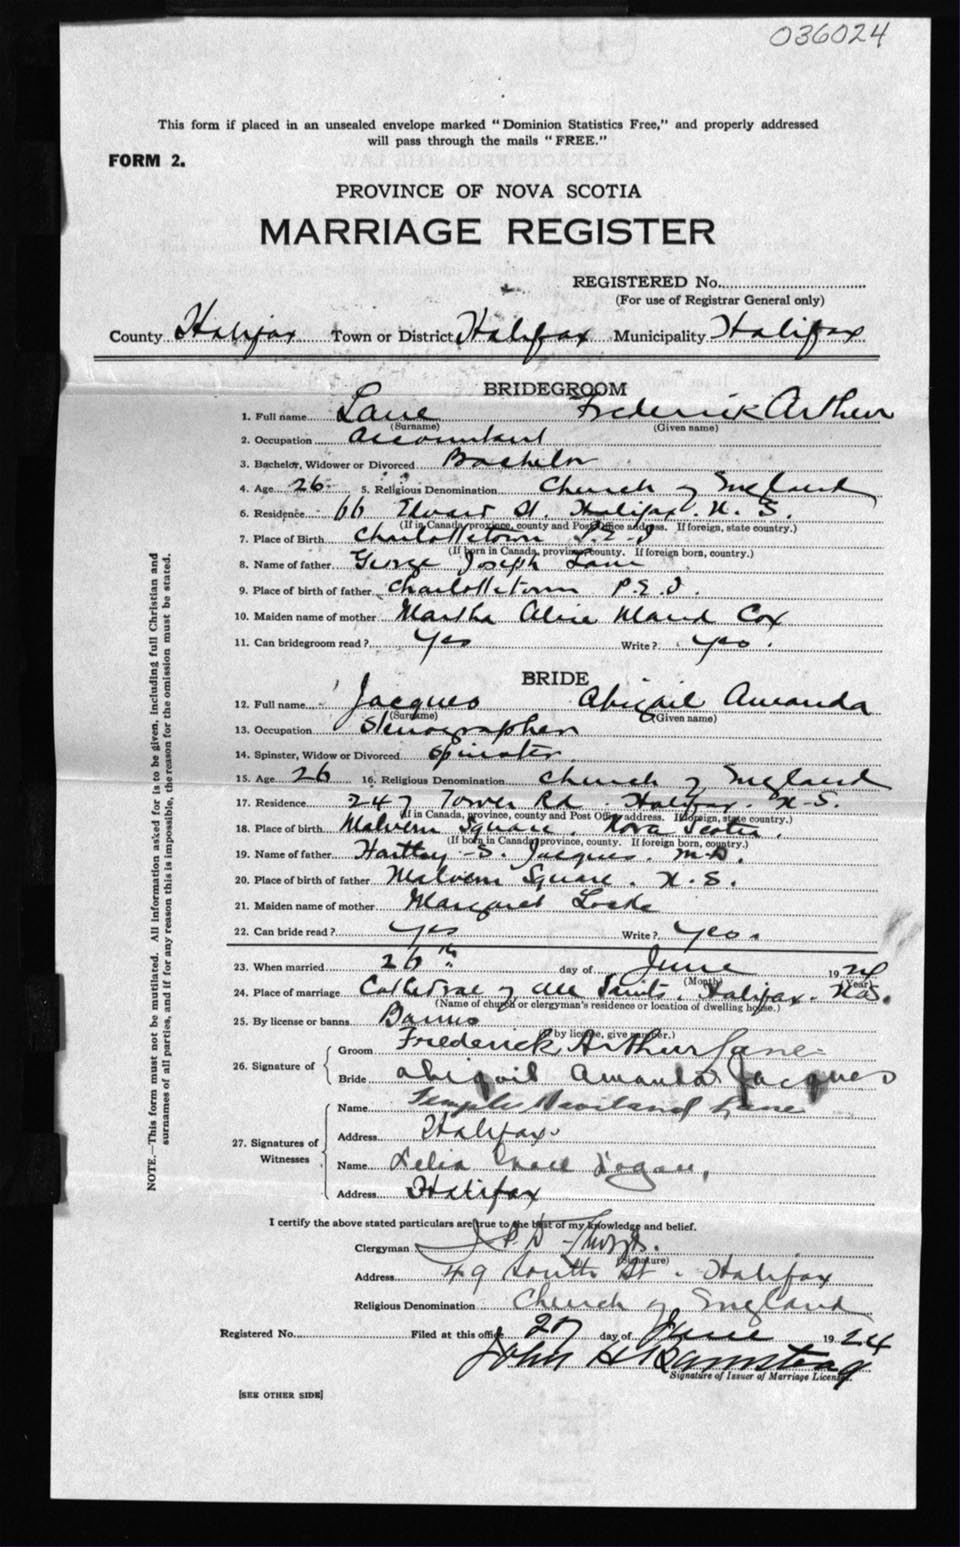 036024
This form if placed in an unsealed envelope marked "Dominion Statistics Free," and properly addressed
will pass through the mails "FREE."
FORM 2.
PROVINCE OF NOVA SCOTIA
MARRIAGE REGISTER
REGISTERED No.
(For use of Registrar General only)
County Halifax Town or District Halifax Municipality Halifax
BRIDEGROOM
1. Full name Lane Frederick Arthur
(Surname) (Given name)
2. Occupation Accountant
3. Bachelor, Widower or Divorced Bachelor
4. Age 26 5. Religious Denomination Church of England
6. Residence 66 Edward St. Halifax. N. S.
(If in Canada, province, county and Post Office address. If foreign, state country.)
7. Place of Birth Charlottetown P.E.I
(If born in Canada, province, county. If foreign born, country.)
8. Name of father George Joseph Lane
9. Place of birth of father Charlottetown P.E.I.
10. Maiden name of mother Martha Alice Maud Cox
11. Can bridegroom read? Yes Write? Yes.
BRIDE
12. Full name Jacques Abigail Amanda
(Surname) (Given name)
13. Occupation Stenographer
14. Spinster, Widow or Divorced Spinster
15. Age 26 16. Religious Denomination Church of England
17. Residence 247 Tower Rd. Halifax. N.S.
(If in Canada, province, county and Post Office address. If foreign, state country.)
18. Place of birth Malvern Square. Nova Scotia.
(If born in Canada, province, county. If foreign born, country.)
19. Name of father Hartley S. Jacques. M.D.
20. Place of birth of father Malvern Square. N.S.
21. Maiden name of mother Margaret Locke
22. Can bride read? Yes Write? Yes.
23. When married 26th day of June 1924
(Month) (Year)
24. Place of marriage Cathedral of All Saints. Halifax. N.S.
(Name of church or clergyman's residence or location of dwelling house.)
25. By license or banns Banns
(If by license, give number.)
26. Signature of
Groom Frederick Arthur Lane
Bride Abigail Amanda Jacques
27. Signatures of Witnesses
Name Lane
Address Halifax.
Name Lelia Logan,
Address Halifax
I certify the above stated particulars are true to the best of my knowledge and belief.
Clergyman
(Signature)
Address 49 South St. Halifax
Religious Denomination Church of England
Registered No. Filed at this office 27 day of June 1924
John H Barnstead
Signature of Issuer of Marriage License.
[SEE OTHER SIDE]
NOTE.—This form must not be mutilated. All information asked for is to be given, including full Christian and
surnames of all parties, and if for any reason this is impossible, the reason for the omission must be stated.